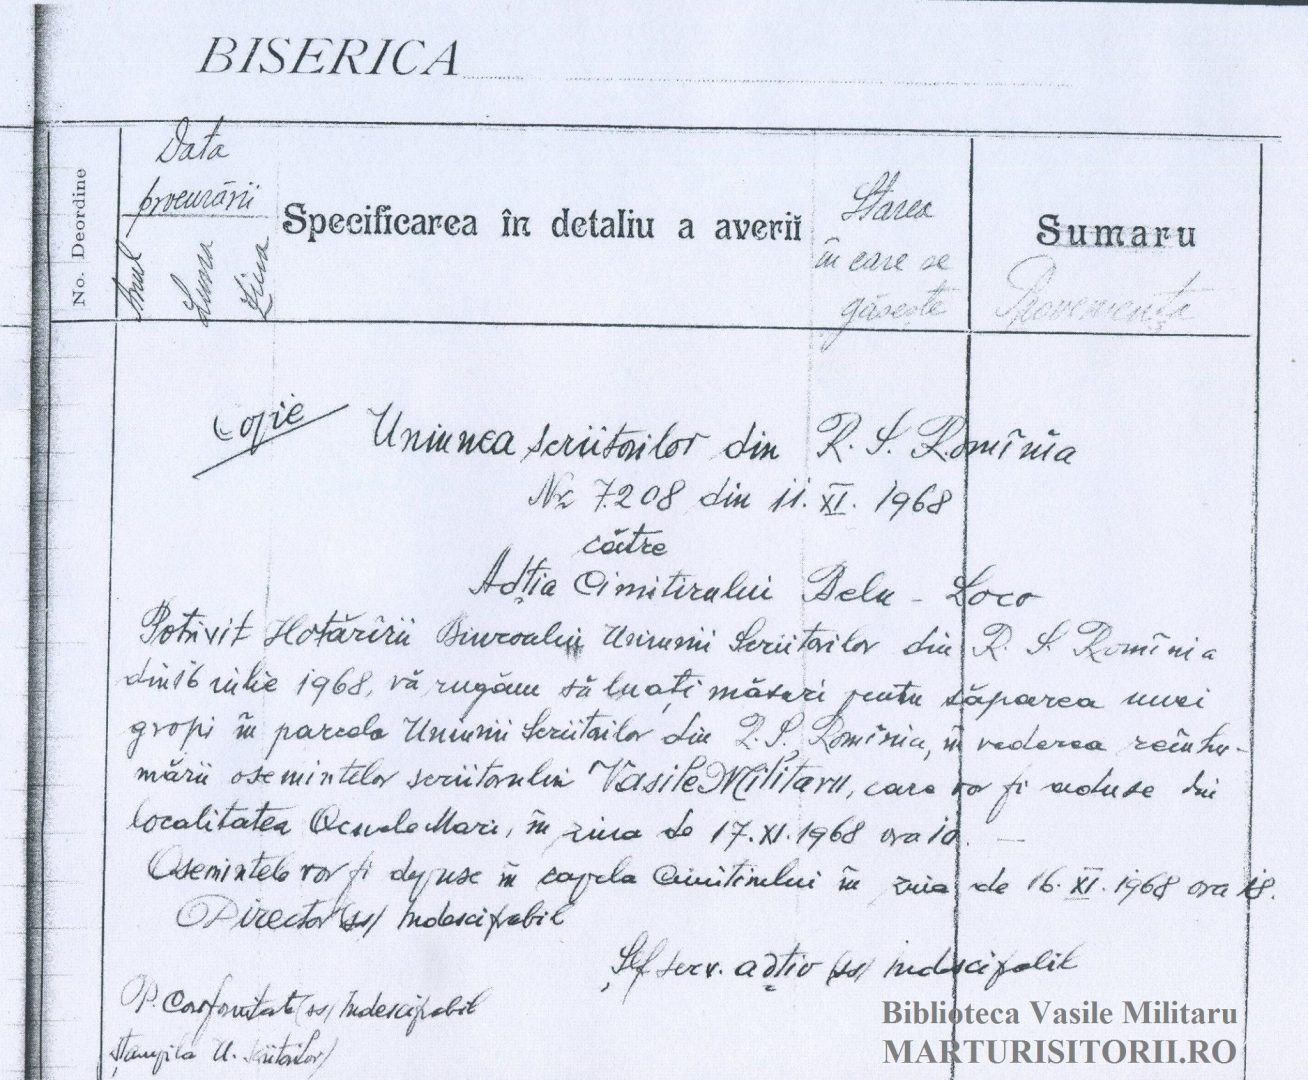 BISERICA
No. Deordine
Data
procurării
Anul
Luna
Ziua
Specificarea în detaliu a averii
Starea
în care se
găsește
Sumaru
Proveniența
Copie
Uniunea scriitorilor din R. S. Romînia
Nr 7208 din 11. XI. 1968
către
Adția Cimitirului Belu - Loco
Potrivit Hotărîrii Biuroului Uniunii Scriitorilor din R. S. Romînia
din 16 iulie 1968, vă rugăm să luați măsuri pentru săparea unei
gropi în parcela Uniunii Scriitorilor din R. S. Romînia, în vederea reînhu-
mării osemintelor scriitorului Vasile Militaru, care vor fi aduse din
localitatea Ocnele Mari, în ziua de 17. XI. 1968 ora 10. —
Osemintele vor fi depuse în capela Cimitirului în ziua de 16. XI. 1968 ora 18.
Director (ss) Indescifrabil
Șef serv. adtiv (ss) indescifrabil
P. Conformitate (ss) Indescifrabil
Ștampila U. Scriitorilor)
Biblioteca Vasile Militaru
MARTURISITORII.RO